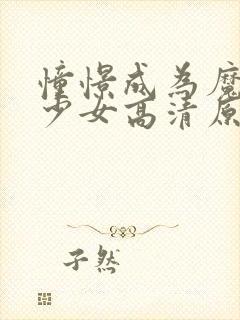 憧憬成為魔
少女高清原
子然